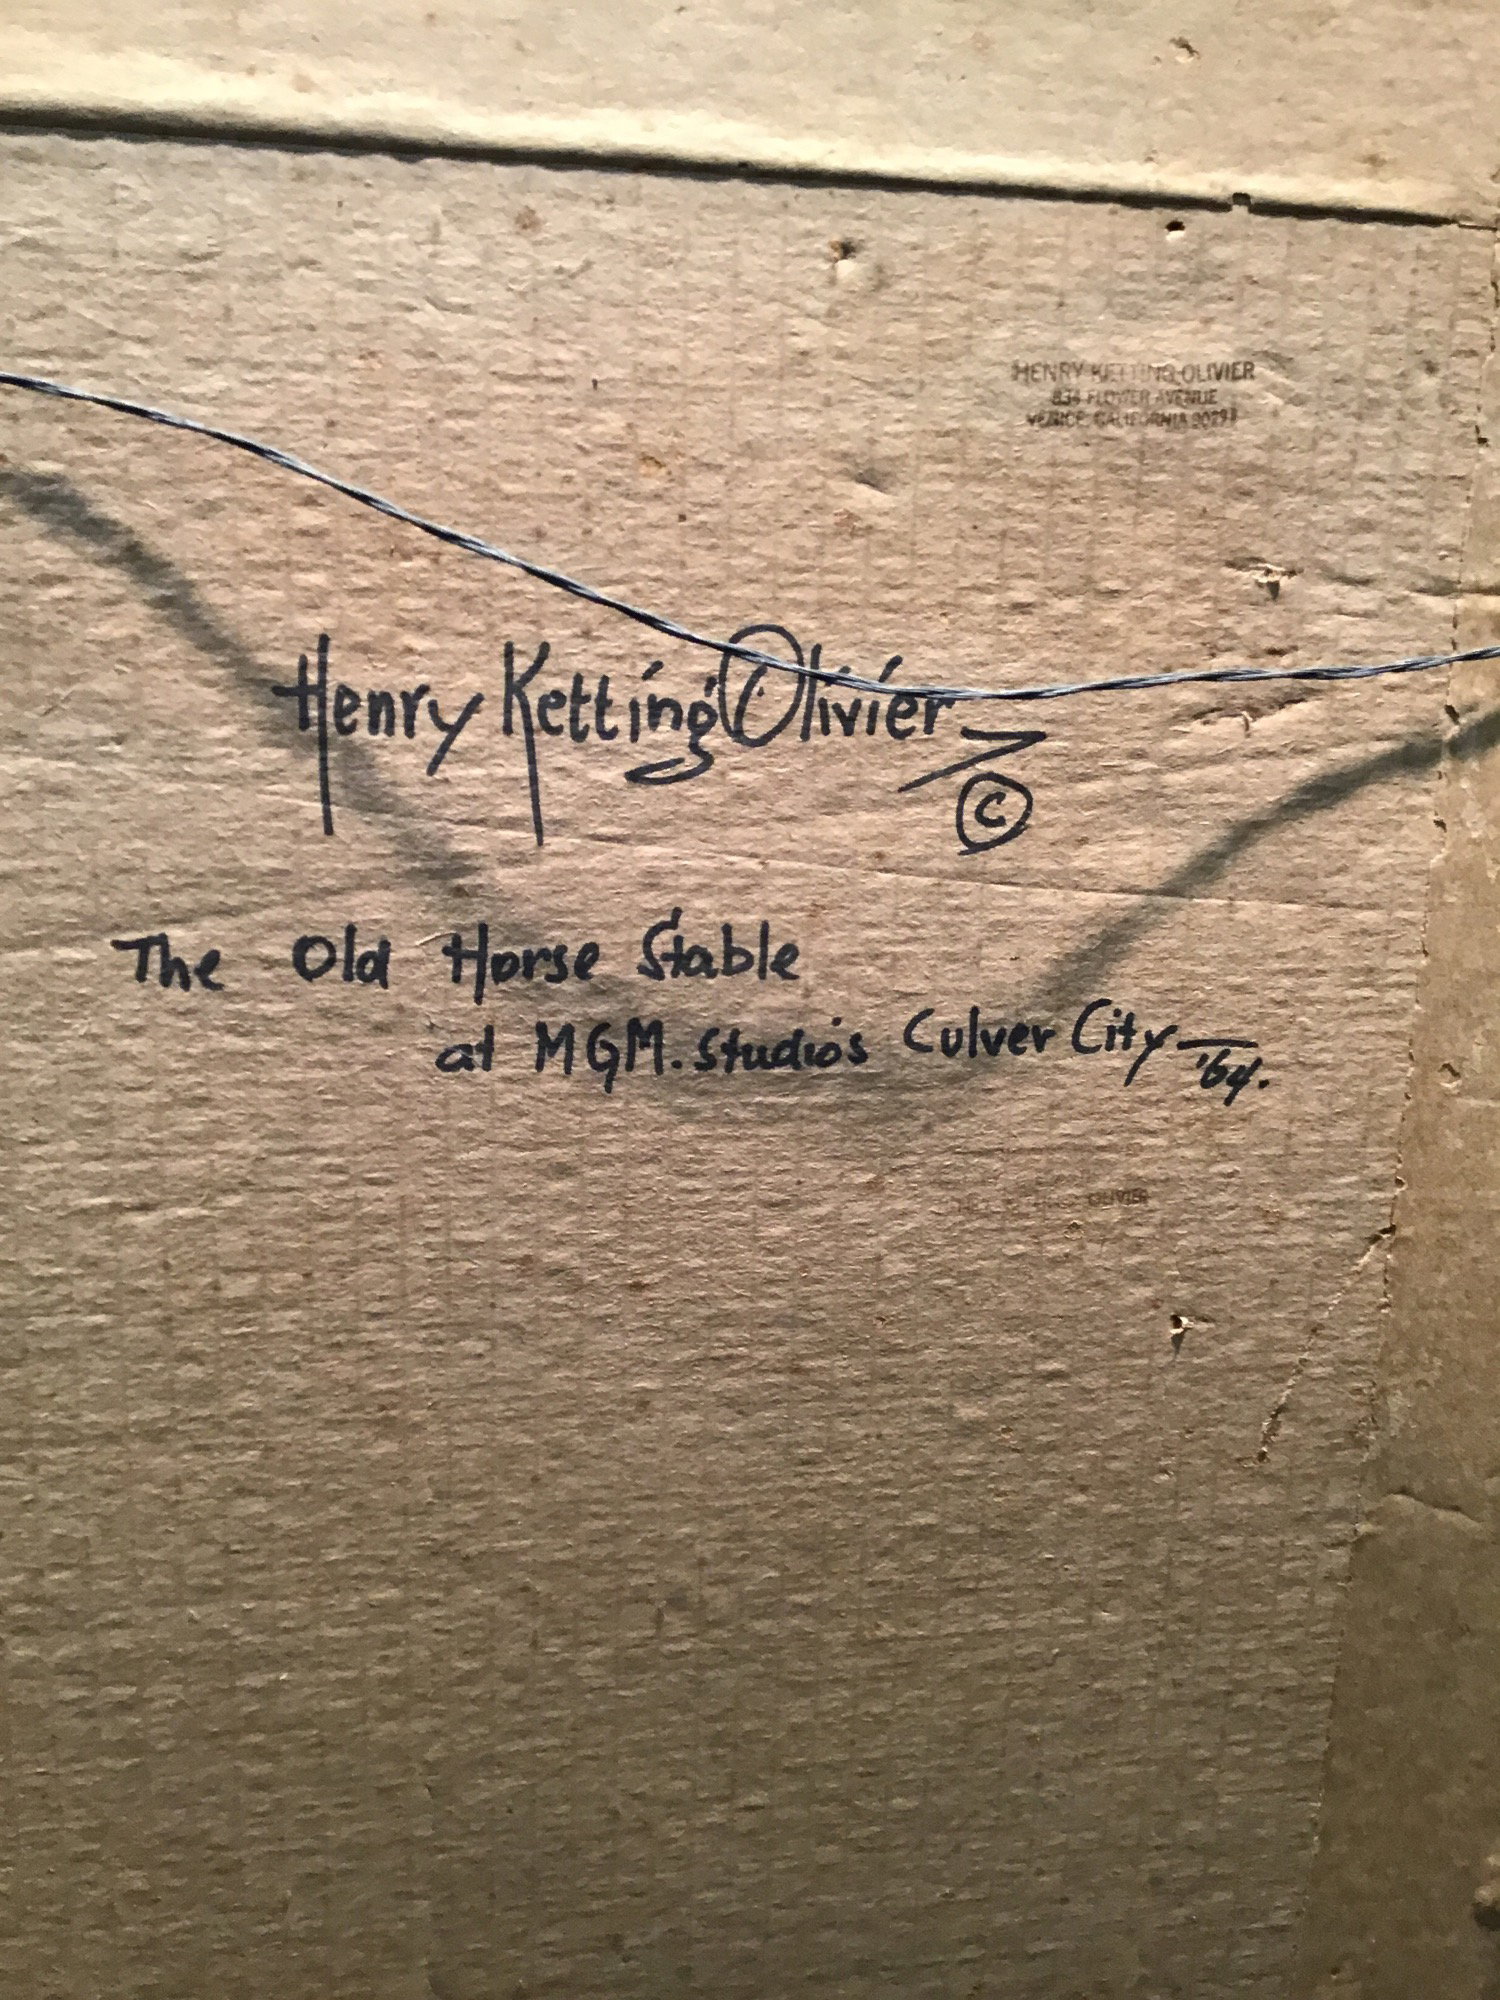 HENRY KETTING OLIVIER
FLOWER AVENUE
VENICE, CALIFORNIA
Henry Ketting Olivier
©
The Old Horse Stable
at MGM. Studio's Culver City
'64.
OLIVIER